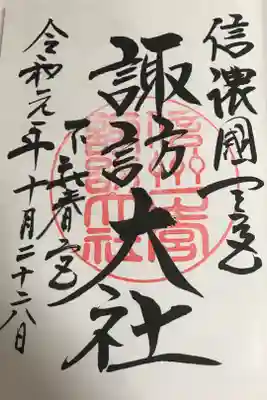 信濃國一之宮
諏訪大社
下社春宮
令和元年十月二十八日